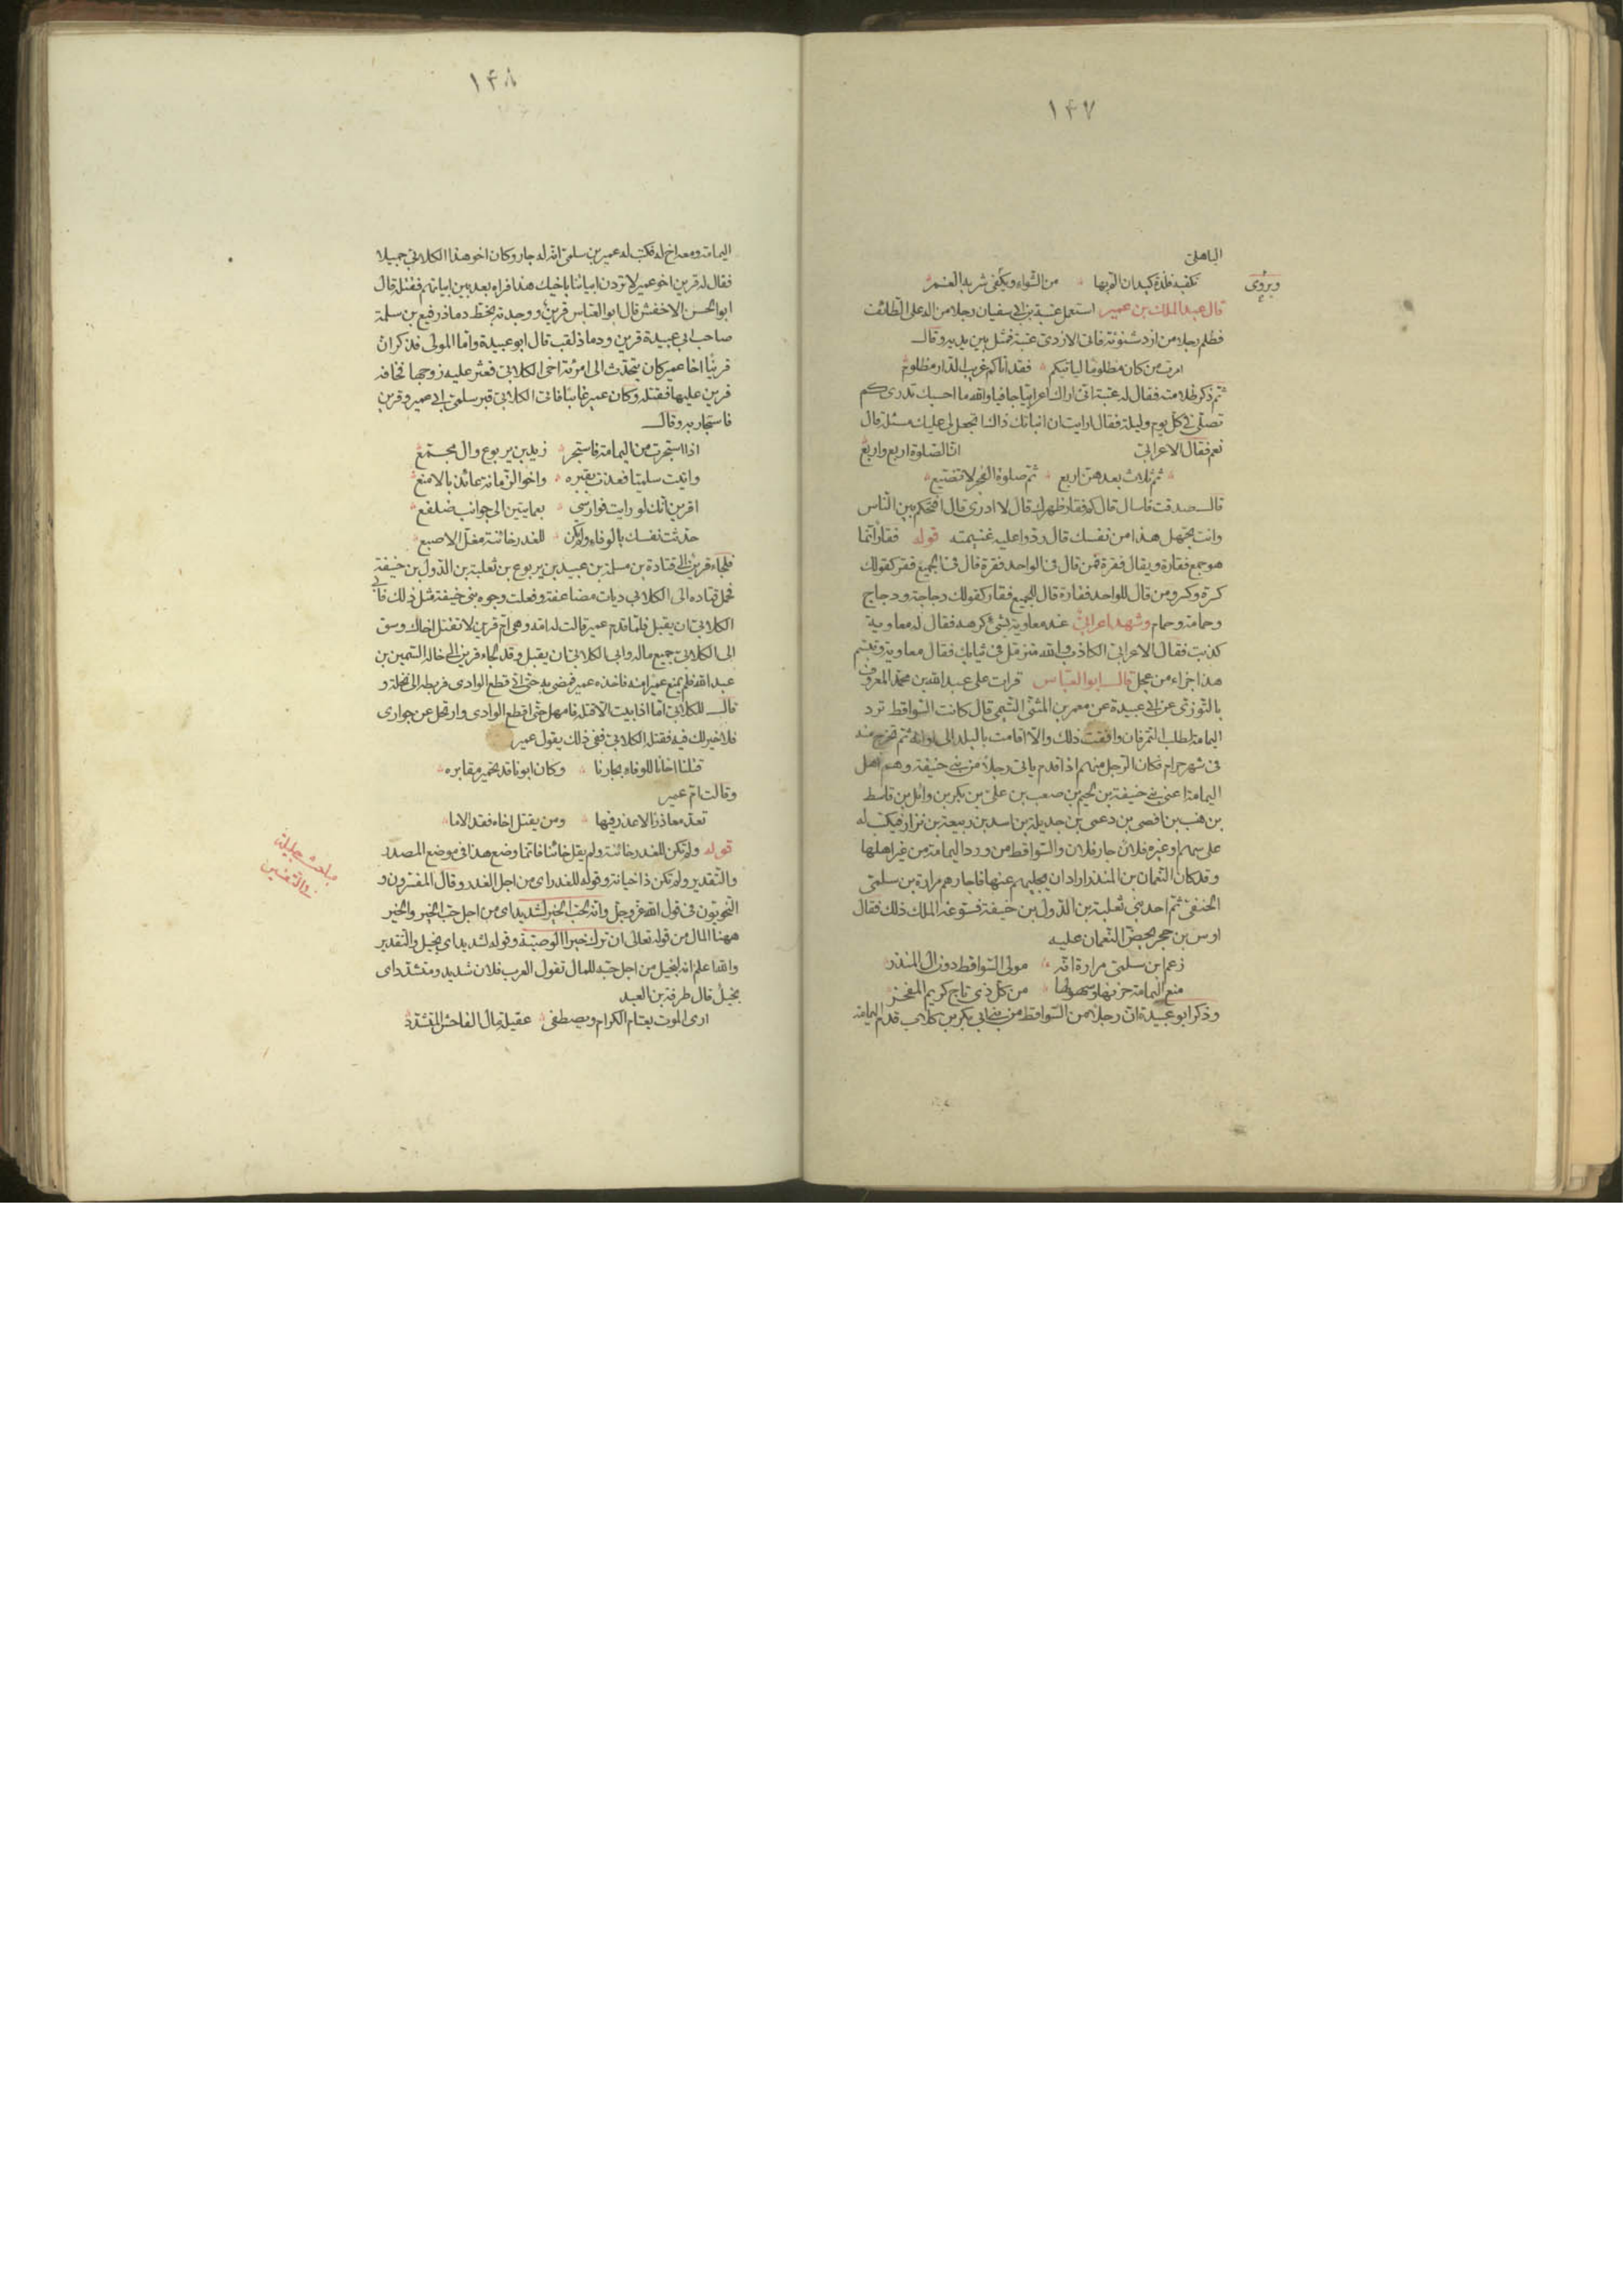 ١٤٧
الباهلى
ويروى
تكفيه فلذة كبد ان الم بها من الشواء ويكفى شربه الغمر
قال عبد الملك بن عمير استعمل عتبة بن ابى سفيان رجلا من اله على الطائف
فظلم رجلا من ازد شنوئة فاتى الازدى عتبة فمثل بين يديه وقال
امرت من كان مظلوما لياتيكم فقد اتاكم غريب الدار مظلوم
ثم ذكر ظلامته فقال له عتبة انى اراك اعرابيا جافيا والله ما احسبك تدرى كم
تصلى فى كل يوم وليلة فقال ارايت ان انباتك ذاك اتجعل لى عليك مسئلة قال
نعم فقال الاعرابى ان الصلوة اربع واربع
ثم ثلاث بعدهن اربع ثم صلوة الفجر لا تضيع
قال صدقت فاسال قال كم فقار ظهرك قال لا ادرى قال افتحكم بين الناس
وانت تجهل هذا من نفسك قال ردوا عليه غنيمته قوله فقار انما
هو جمع فقارة ويقال فقرة فمن قال فى الواحد فقرة قال فى الجميع فقر كقولك
كسرة وكسر ومن قال للواحد فقارة قال للجميع فقار كقولك دجاجة ودجاج
وحمامة وحمام وشهد اعرابى عند معاوية بشئ كرهه فقال له معاوية
كذبت فقال الاعرابى الكاذب والله متزمل فى ثيابك فقال معاوية وتبسم
هذا جزاء من عجل قال ابو العباس قرات على عبد الله بن محمد المعروف
بالتوزى عن ابى عبيدة عن معمر بن المثنى التيمى قال كانت السواقط ترد
اليمامة لطلب التمر فان وافقت ذلك والا اقامت بالبلد الى اوانه ثم تخرج منه
فى شهر حرام فكان الرجل منهم اذا قدم ياتى رجلا من بنى حنيفة وهم اهل
اليمامة اعنى بنى حنيفة بن لجيم بن صعب بن على بن بكر بن وائل بن قاسط
بن هنب بن افصى بن دعمى بن جديلة بن اسد بن ربيعة بن نزار فيكتب له
على سهم او غيره فلان جار فلان والسواقط من ورد اليمامة من غير اهلها
وقد كان النعمان بن المنذر اراد ان يجليهم عنها فاجارهم مرارة بن سلمى
الحنفى ثم احد بنى ثعلبة بن الدول بن حنيفة فسوغه الملك ذلك فقال
اوس بن حجر يحض النعمان عليه
زعم ابن سلمى مرارة انه مولى السواقط دون ال المنذر
منع اليمامة حزنها وسهولها من كل ذى تاج كريم المفخر
وذكر ابو عبيدة ان رجلا من السواقط من بنى ابى بكر بن كلاب قدم اليمامة
١٤٨
اليمامة ومعه اخ له فكتب له عمير بن سلمى انه له جار وكان اخو هذا الكلابى جميلا
فقال له قرين اخو عمير لا تردن ابياتنا باخيك هذا فراه بعد بين ابياتهم فقتله قال
ابو الحسن الاخفش قال ابو العباس قرين ووجدته بخط دماذ رفيع بن سلمة
صاحب ابى عبيدة قرين ودماذ لقب قال ابو عبيدة واما المولى فذكر ان
قرينا اخا عمير كان يتحدث الى امرئة اخى الكلابى فعثر عليه زوجها فخافه
قرين عليها فقتله وكان عمير غائبا فاتى الكلابى قبر سلمى ابى عمير وقرين
فاستجار به وقال
اذا استجرت من اليمامة فاستجر زيد بن يربوع وال مجمع
واتيت سليمًا فعذت بقبره واخو الزمانة عائذ بالامنع
اقرين انك لو رايت فوارسى بعمايتين الى جوانب ضلفع
حدثت نفسك بالوفاء ولم تكن للغدر خائنة مغل الاصبع
فلجاء قرين الى قتادة بن مسلمة بن عبيد بن يربوع بن ثعلبة بن الدول بن حنيفة
فحمل قتاده الى الكلابى ديات مضاعفة وفعلت وجوه بنى حنيفة مثل ذلك فابى
الكلابى ان يقبل فلما قدم عمير قالت له امه وهى ام قرين لا تقتل اخاك وسق
الى الكلابى جميع ماله وابى الكلابى ان يقبل وقد لجاء قرين الى خاله السمين بن
عبد الله فلم يمنع عميرا منه فاخذه عمير فمضى به حتى اذا قطع الوادى فربطه الى نخلة و
قال للكلابى اما اذا ابيت الا قتله فامهل حتى اقطع الوادى وارتحل عن جوارى
فلا خير لك فيه فقتله الكلابى ففى ذلك يقول عمير
قتلنا اخانا للوفاء بجارنا وكان ابونا قد تجير مقابره
وقالت ام عمير
تعد معاذرا لا عذر فيها ومن يقتل اخاه فقد الاما
قوله ولم تكن للغدر خائنة ولم يقل خائنا فانما وضع هذا فى موضع المصدر
والتقدير ولم تكن ذا خيانة وقوله للغدر اى من اجل الغدر وقال المفسرون و
النحويون فى قول الله عز وجل وانه لحب الخير لشديد اى من اجل حب الخير والخير
ههنا المال من قوله تعالى ان ترك خيرا الوصية وقوله لشديد اى بخيل والتقدير
والله اعلم انه لبخيل من اجل حبه للمال تقول العرب فلان شديد ومتشدد اى
بخيل قال طرفة بن العبد
ارى الموت يعتام الكرام ويصطفى عقيلة مال الفاحش المتشدد